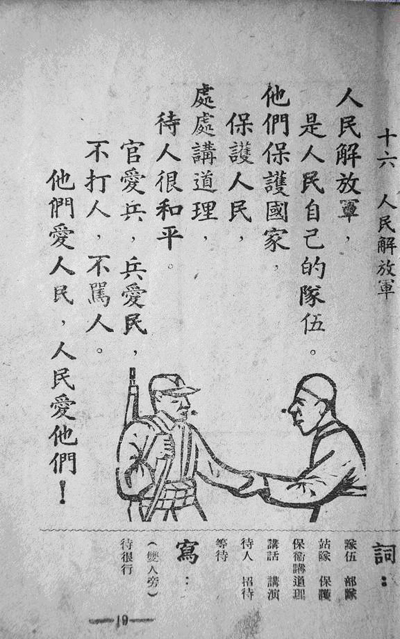 十六　人民解放軍
人民解放軍，
是人民自己的隊伍。
他們保護國家，
保護人民，
處處講道理，
待人很和平。
官愛兵，兵愛民，
不打人，不駡人。
他們愛人民，人民愛他們！
詞：
隊伍　部隊
站隊　保護
保衛講道理
講話　講演
待人　招待
等待
寫：
（雙人旁）
待很行
19